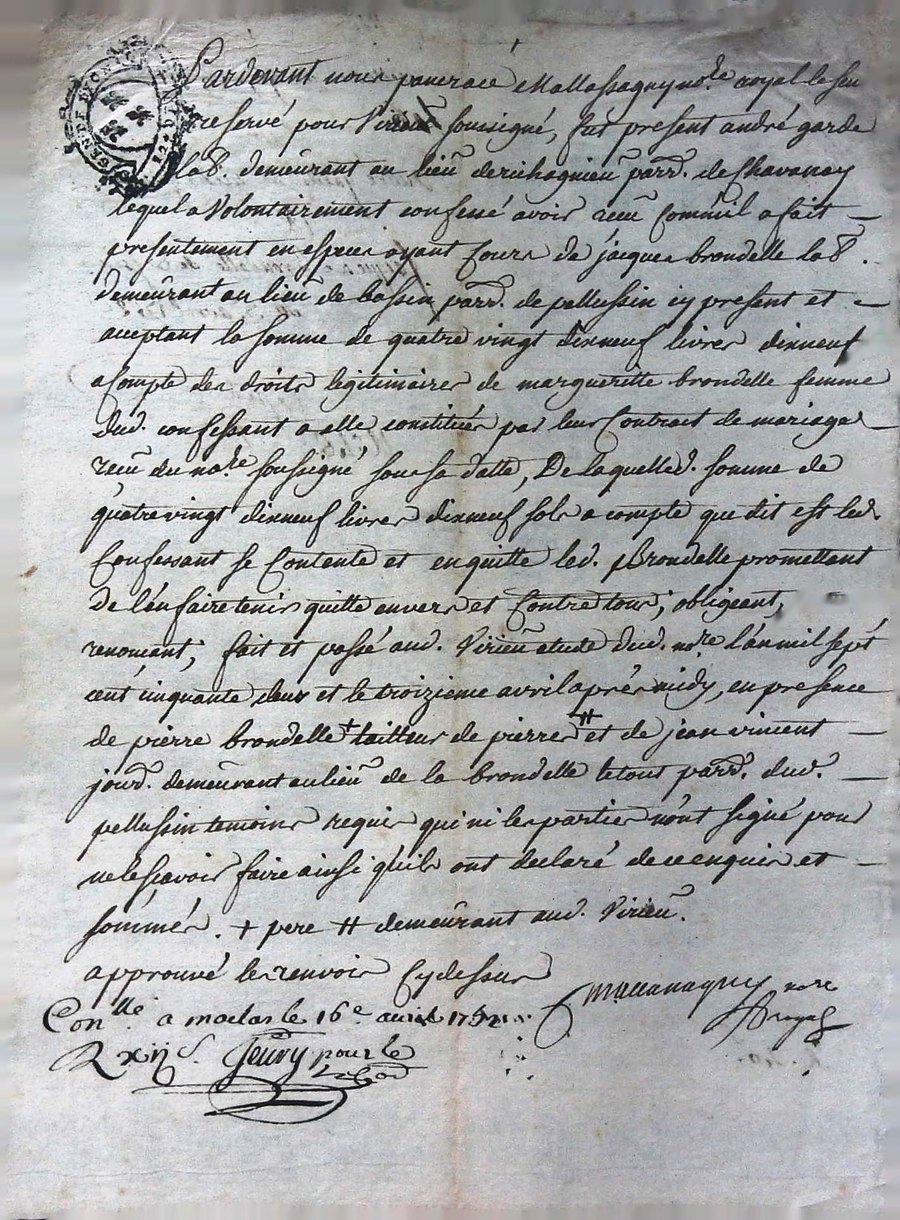 Pardevant nous pancrace Mallassagny no.re royal le seu
reservé pour Virieu soussigné, fut present andré garde
lab.r demeurant au lieu de richagnieu parr. de Chavanay
lequel a Volontairement confessé avoir receu comme il a fait —
presentement en especes ayant Cours de jacques brondelle lab.r
demeurant au lieu de bassin parr. de pellussin icy present et —
acceptant la somme de quatre vingt dixneuf livres dixneuf
a Compte des droits legitimaires de margueritte brondelle femme
dud. confessant a elle constitués par leur Contract de mariage —
receu du no.re soussigné sous sa datte, De laquelle d. somme de
quatre vingt dixneuf livres dixneuf sols a compte que dit est led.
Confessant se Contente et en quitte led. Brondelle promettant
de l'en faire tenir quitte envers et Contre tous, obligeant,
renoncant, fait et passé aud. Virieu etude dud. no.re l'an mil sept
cent cinquante deux et le troizieme avril après midy, en presence
de pierre brondelle + tailleur de pierres ++ et de jean vincent —
jour. demeurant au lieu de la brondelle le tout parr. dud. —
pellussin temoins requis qui ni les parties n'ont signé pour
ne le scavoir faire ainsi qu'ils ont declaré de ce enquis et —
sommés. + pere ++ demeurant aud. Virieu.
approuvé les renvois Cy dessus
Mallassagny no.re
royal
Con.llé a maclas le 16e avril 1752
R xij s. Jeury pour le